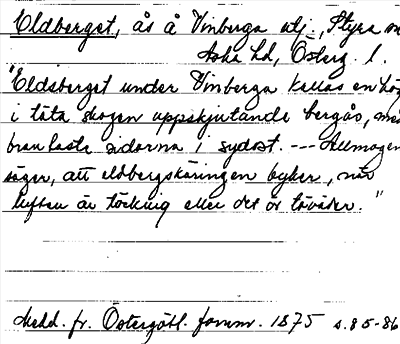 Eldberget, ås å Vinberga utj., Styra sn
Aska hd, Österg. l.
"Eldsberget under Vinberga kallas en hög
i täta skogen uppskjutande bergås, med
branta sidorna i sydost. --- Allmogen
säger, att eldbergskäringen byker, når
luften är töcknig eller det är töväder."
Medd. fr. Östergötl. fornm. 1875 s. 85-86